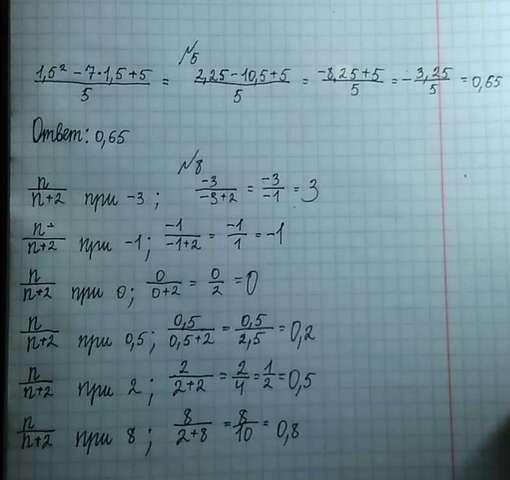 №5
(1,5² - 7·1,5+5)/5 = (2,25-10,5+5)/5 = (-8,25+5)/5 = -3,25/5 = 0,65
Ответ: 0,65
№8
n/(n+2) при -3; -3/(-3+2) = -3/-1 = 3
n/(n+2) при -1; -1/(-1+2) = -1/1 = -1
n/(n+2) при 0; 0/(0+2) = 0/2 = 0
n/(n+2) при 0,5; 0,5/(0,5+2) = 0,5/2,5 = 0,2
n/(n+2) при 2; 2/(2+2) = 2/4 = 1/2 = 0,5
n/(n+2) при 8; 8/(2+8) = 8/10 = 0,8